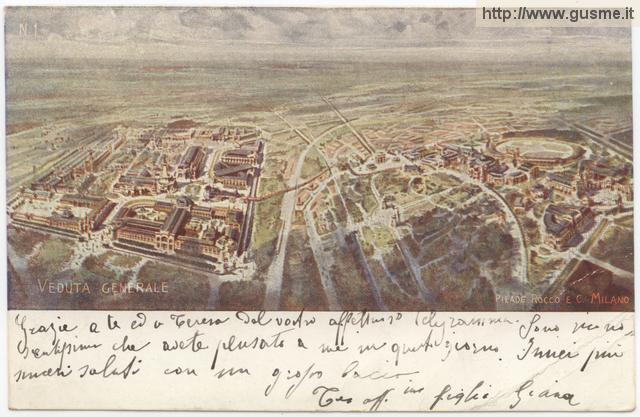 http://www.gusme.it
N 1
VEDUTA GENERALE
PILADE ROCCO E C. MILANO
Grazie a te ed a Teresa del vostro affettuoso telegramma. Sono
che avete pensato a me in questo giorno. I miei più
sinceri saluti con un grosso bacio
Tuo aff. figlio